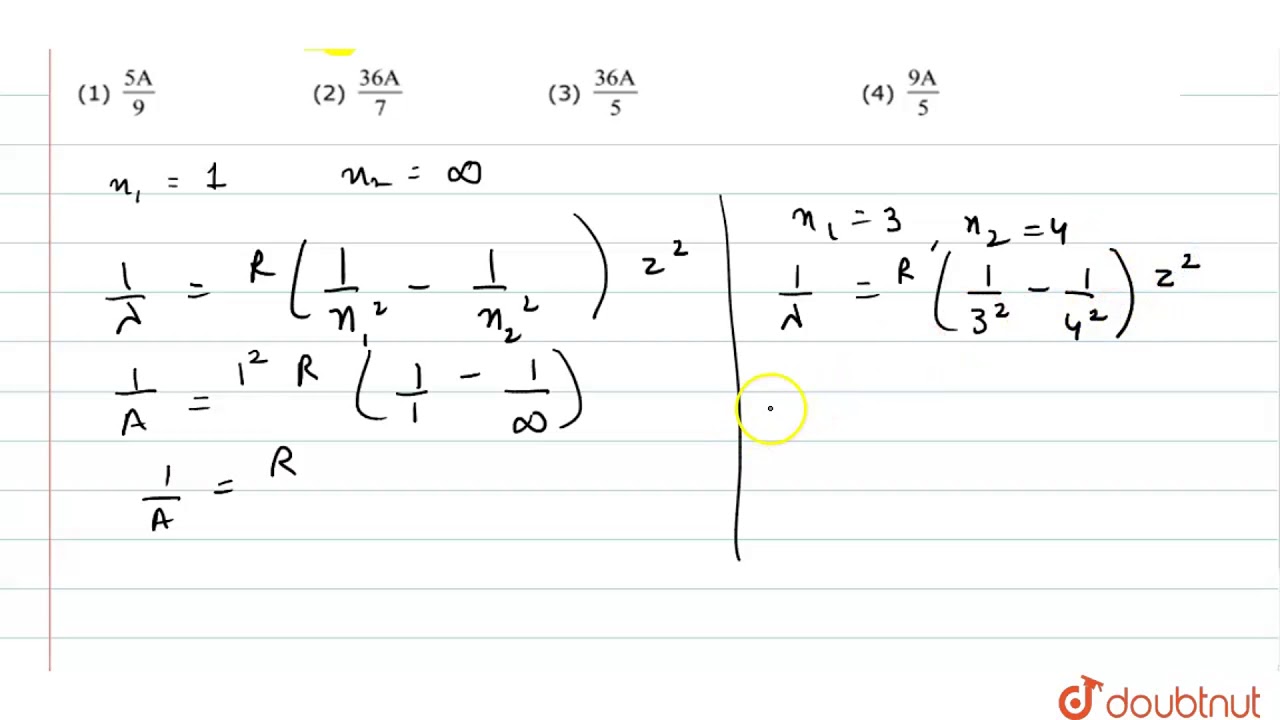 (1) 5A/9 (2) 36A/7 (3) 36A/5 (4) 9A/5
n₁ = 1 n₂ = ∞
1/λ = R (1/n₁² - 1/n₂²) z²
1/A = 1² R (1/1 - 1/∞)
1/A = R
n₁ = 3, n₂ = 4
1/λ = R (1/3² - 1/4²) z²
doubtnut